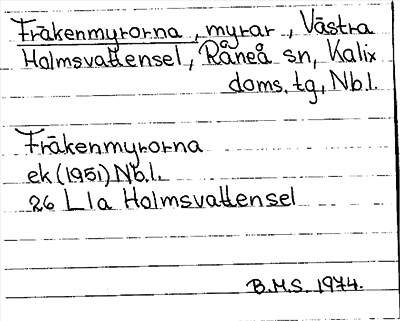 Fräkenmyrorna, myrar, Västra
Holmsvattensel, Råneå sn, Kalix
doms. tg, Nb.l.
Fräkenmyrorna
ek (1951) Nb.l.
26 L1a Holmsvattensel
B.M.S. 1974.